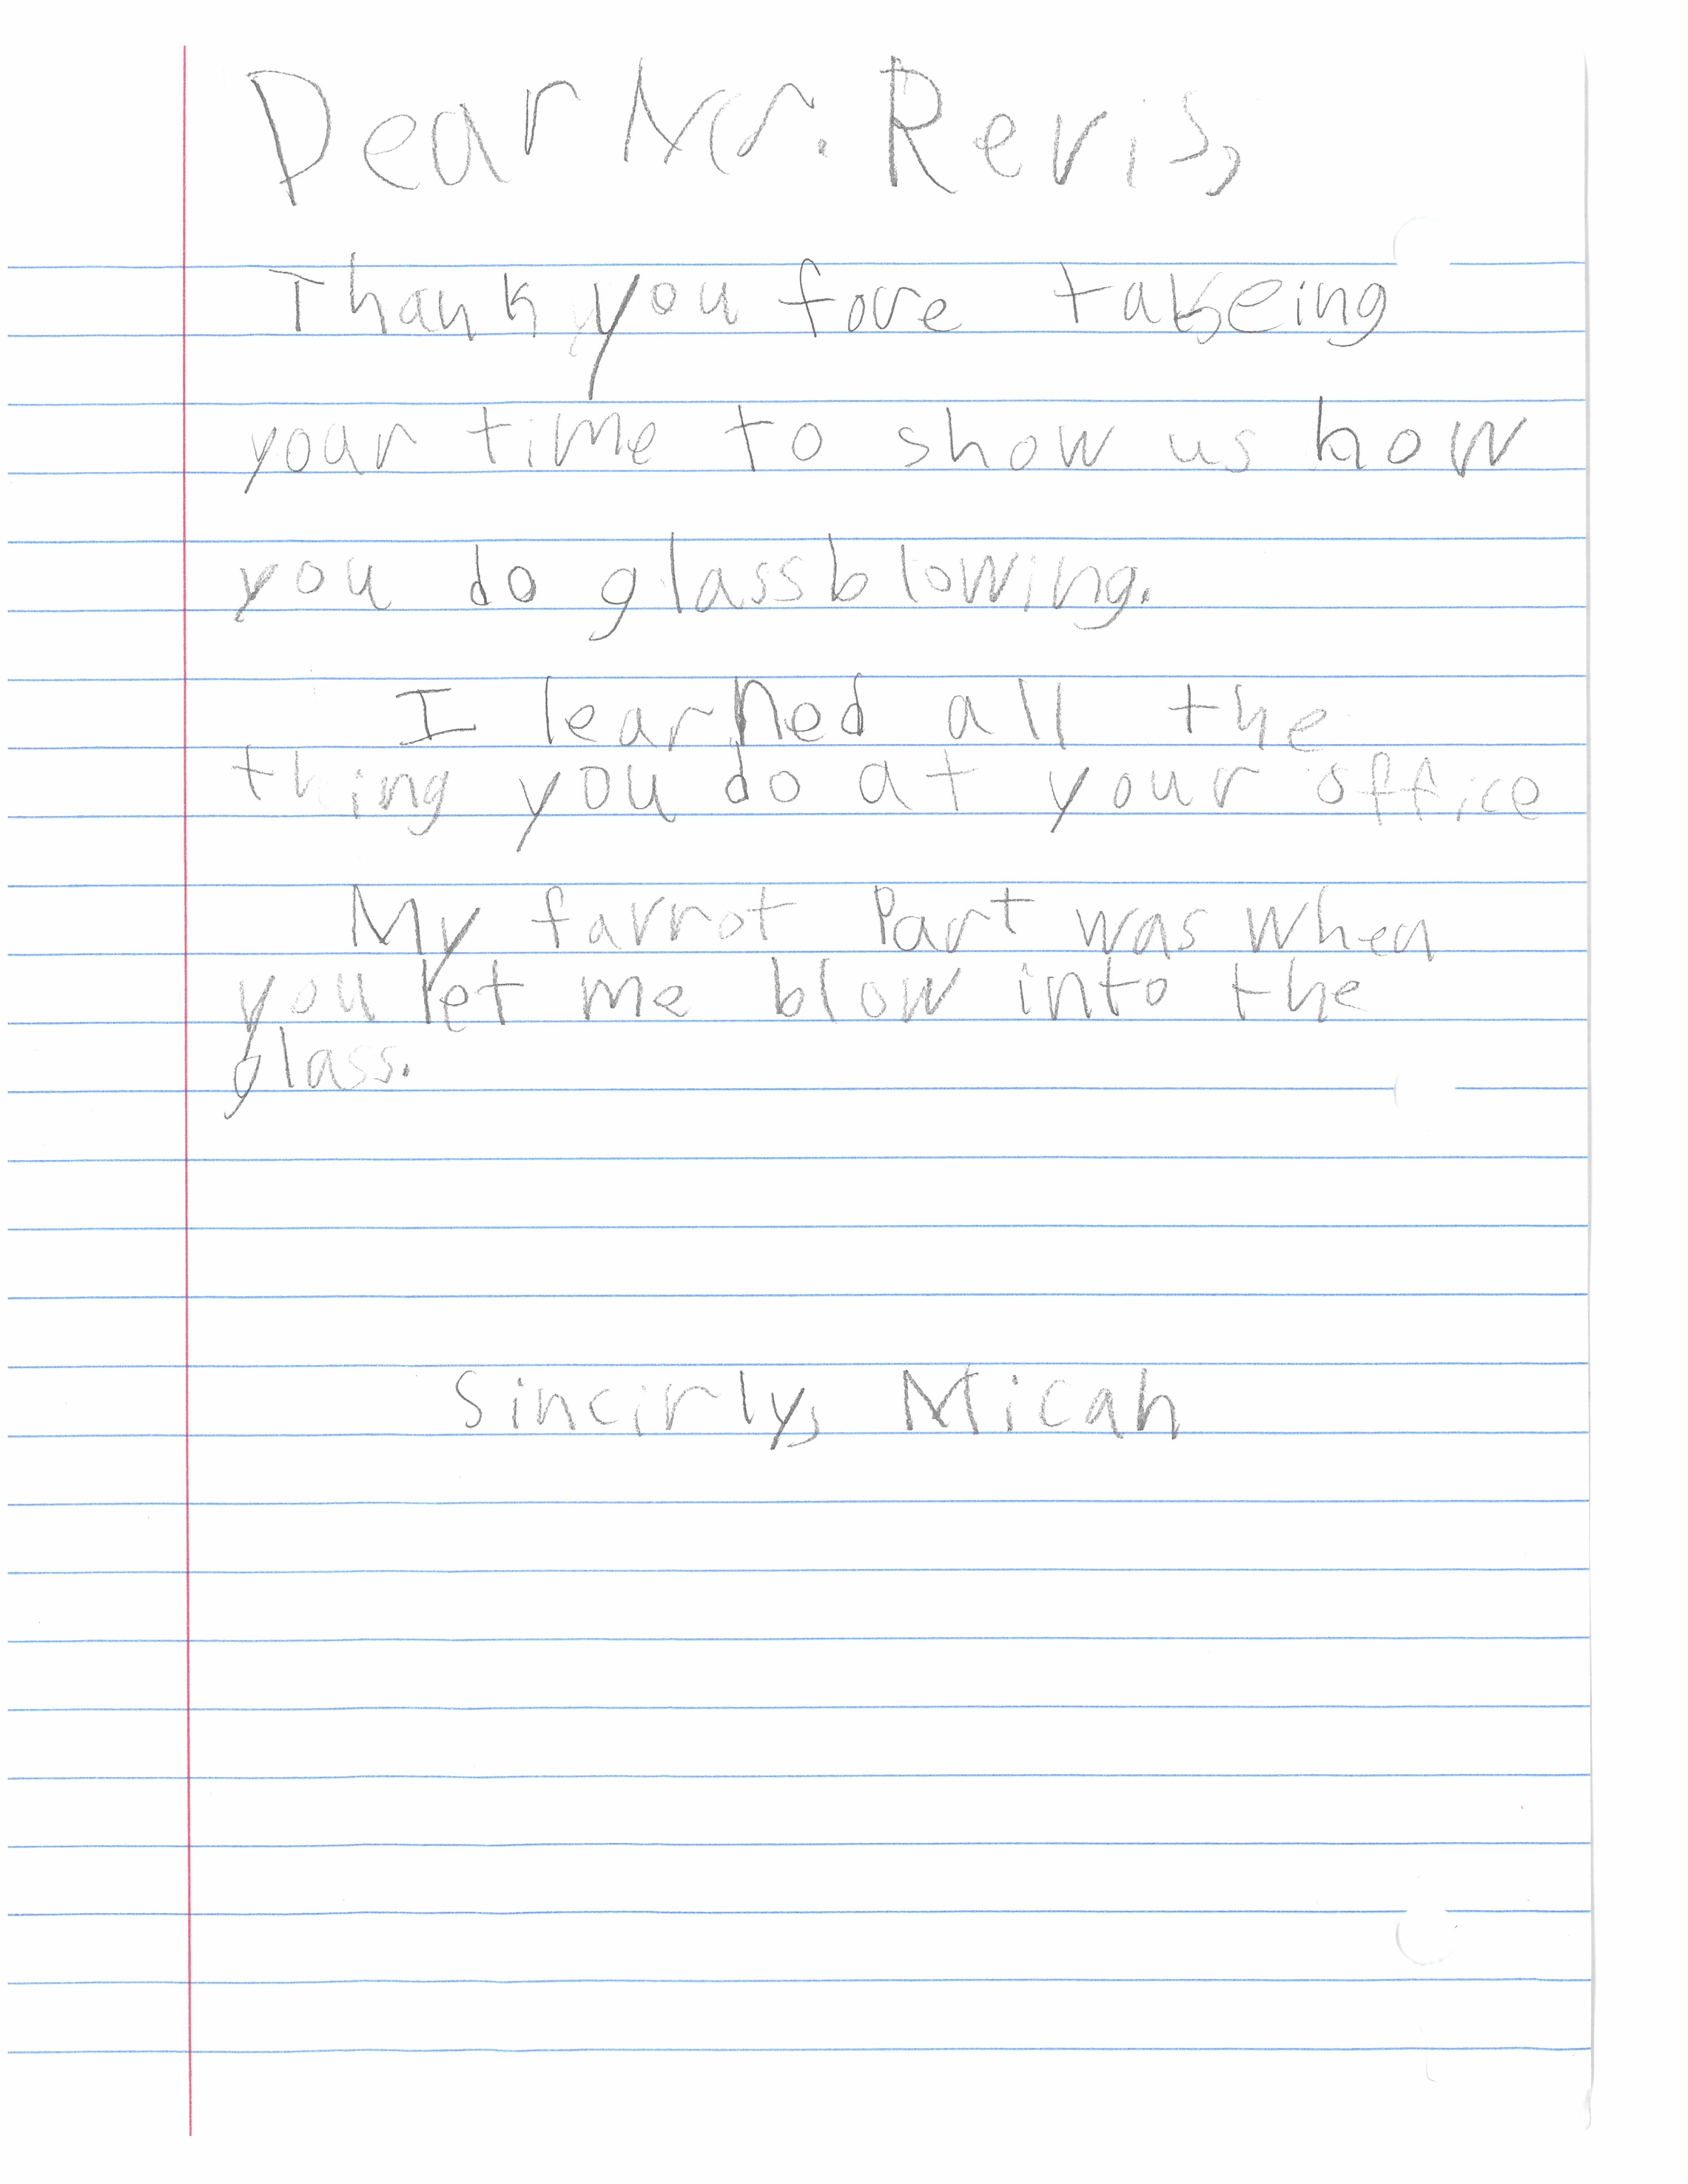 Dear Mr. Revis,
Thank you fore takeing
your time to show us how
you do glassblowing.
I learned all the
thing you do at your office
My favrot Part was when
you let me blow into the
glass.
Sincirly, Micah